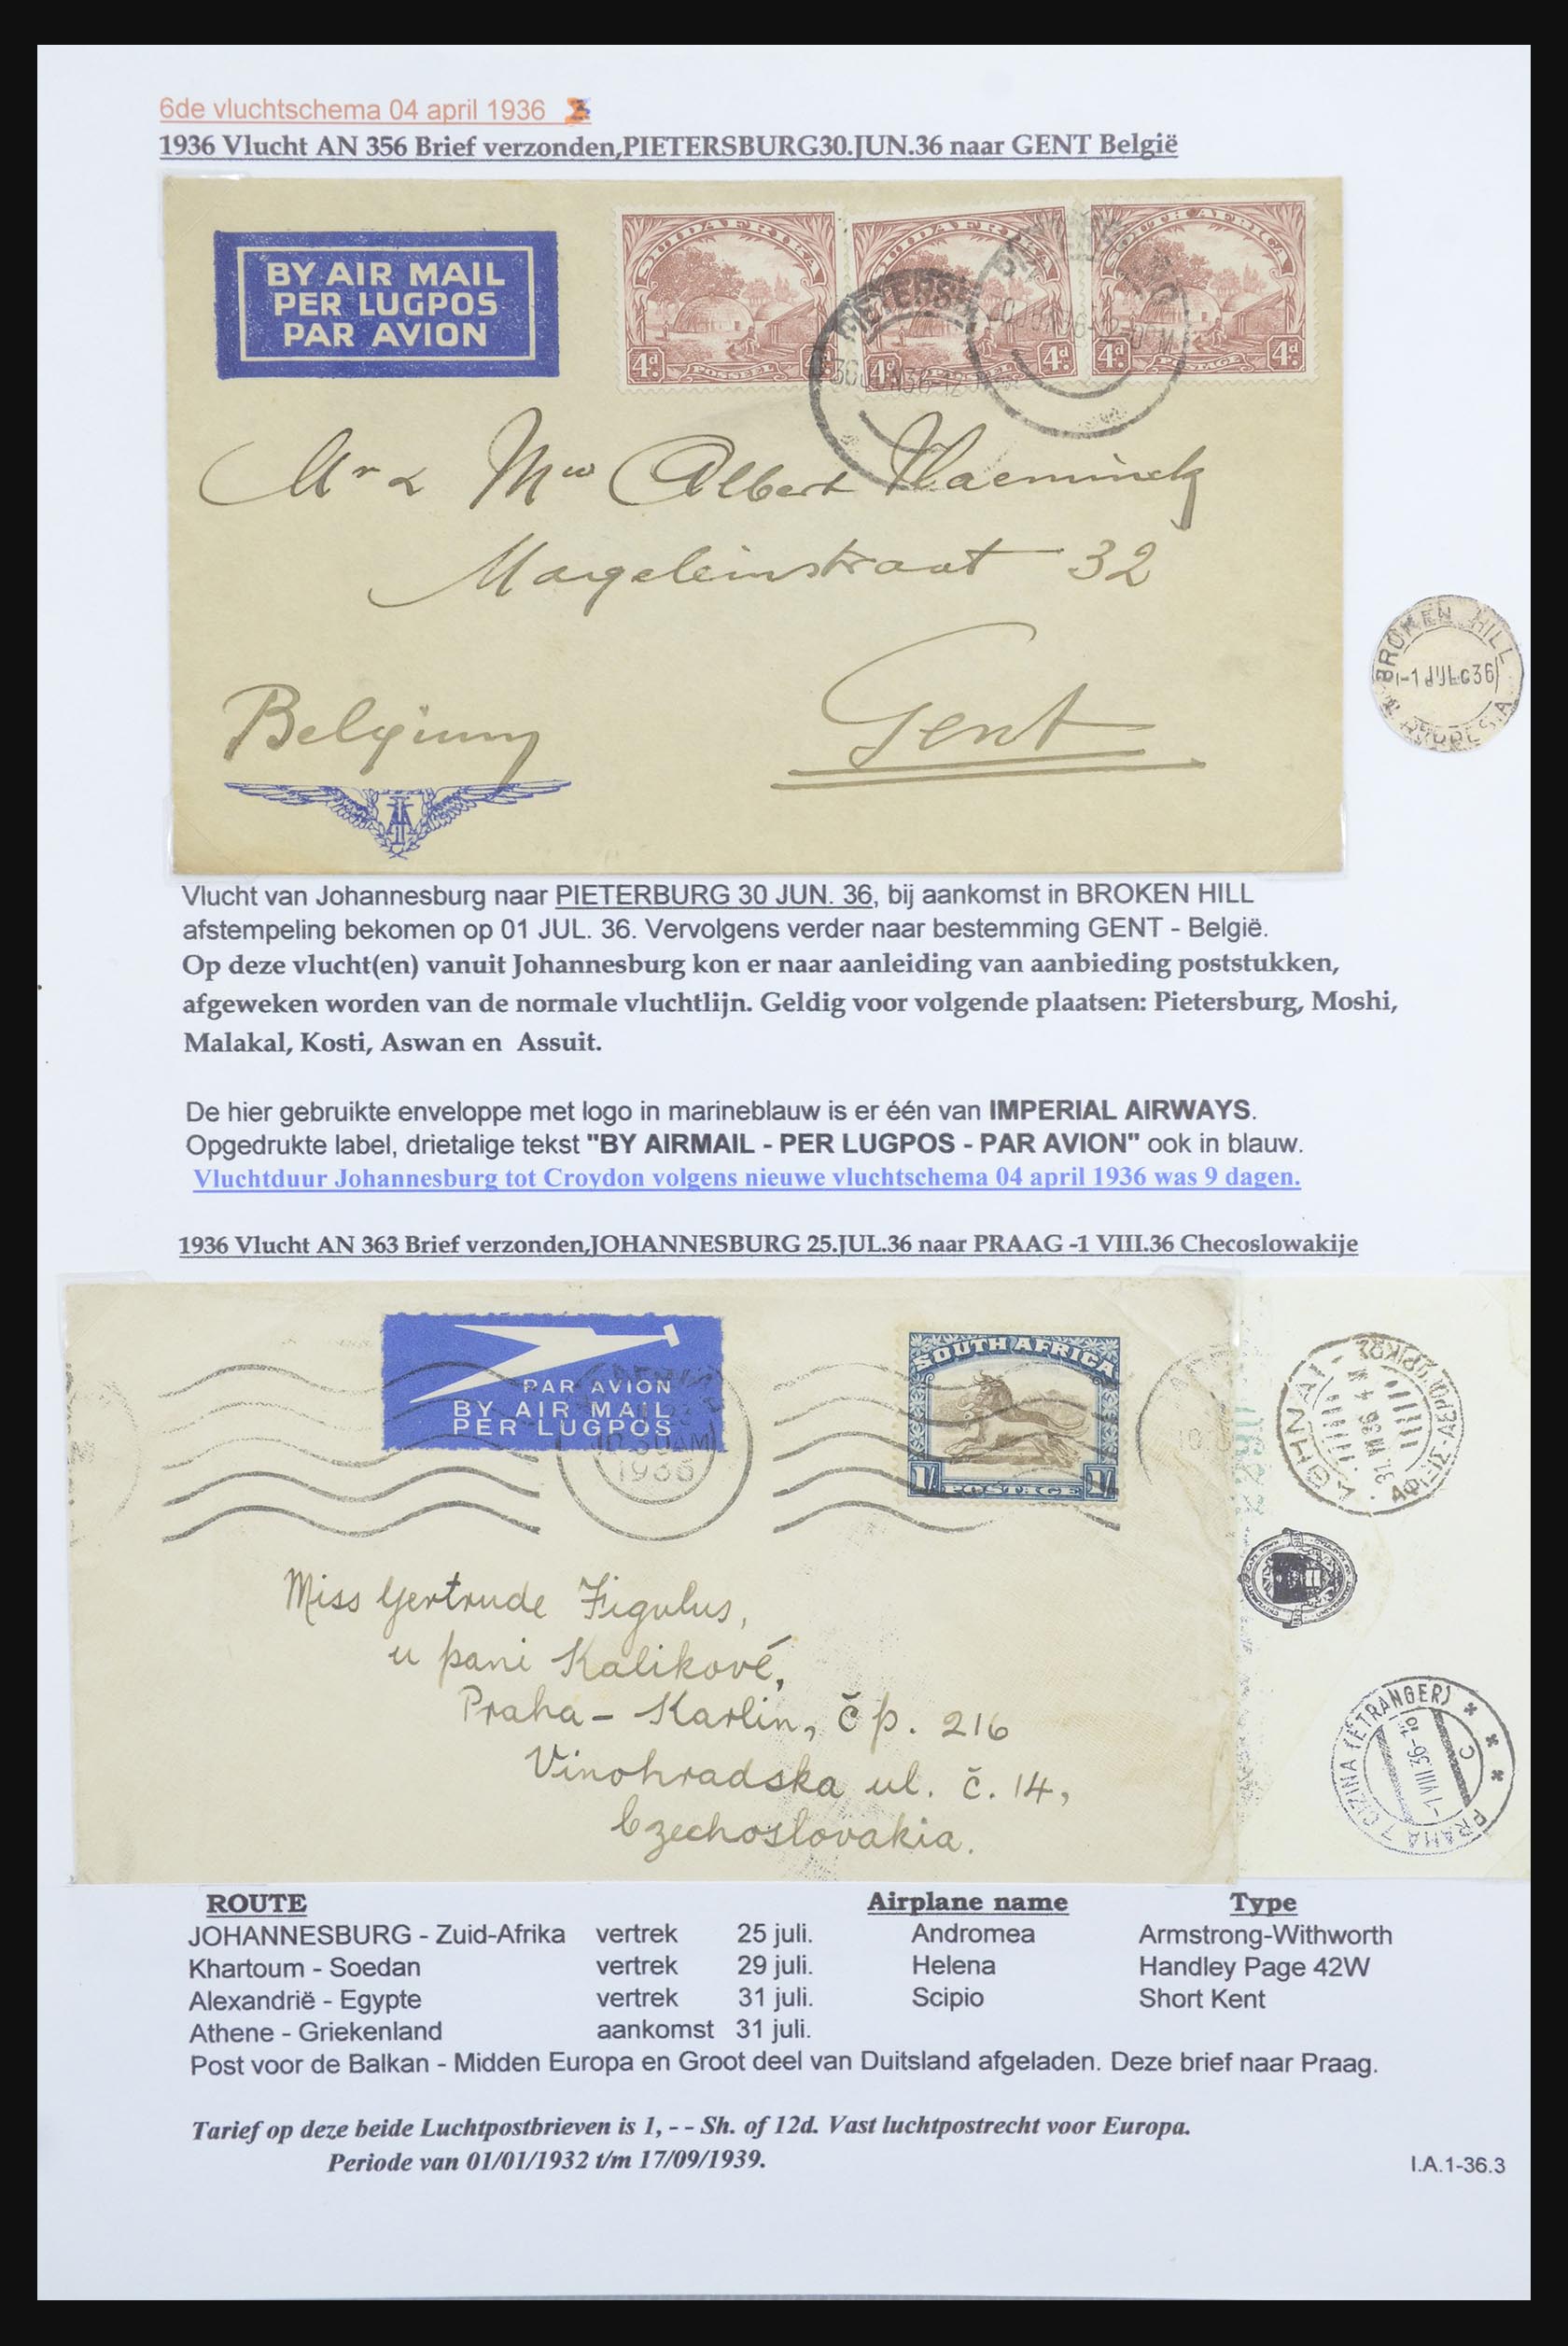 6de vluchtschema 04 april 1936
1936 Vlucht AN 356 Brief verzonden,PIETERSBURG30.JUN.36 naar GENT België
BY AIR MAIL
PER LUGPOS
PAR AVION
SUIDAFRIKA
4d. 4d.
POSSEEL
SUIDAFRIKA
4d. 4d.
POSSEEL
SOUTH AFRICA
4d. 4d.
POSTAGE
PIETERSB
Mr & Mw Albert Vlaeminck
Mageleinstraat 32
Gent
Belgium
BROKEN HILL
-1 JUL 36
N. RHODESIA
Vlucht van Johannesburg naar PIETERBURG 30 JUN. 36, bij aankomst in BROKEN HILL
afstempeling bekomen op 01 JUL. 36. Vervolgens verder naar bestemming GENT - België.
Op deze vlucht(en) vanuit Johannesburg kon er naar aanleiding van aanbieding poststukken,
afgeweken worden van de normale vluchtlijn. Geldig voor volgende plaatsen: Pietersburg, Moshi,
Malakal, Kosti, Aswan en Assuit.
De hier gebruikte enveloppe met logo in marineblauw is er één van IMPERIAL AIRWAYS.
Opgedrukte label, drietalige tekst "BY AIRMAIL - PER LUGPOS - PAR AVION" ook in blauw.
Vluchtduur Johannesburg tot Croydon volgens nieuwe vluchtschema 04 april 1936 was 9 dagen.
1936 Vlucht AN 363 Brief verzonden,JOHANNESBURG 25.JUL.36 naar PRAAG -1 VIII.36 Checoslowakije
PAR AVION
BY AIR MAIL
PER LUGPOS
10 30AM
1936
SOUTH AFRICA
1/ 1/
POSTAGE
ΑΘΗΝΑΙ
31 VII 36 4
ΑΦΙΞΙΣ-ΑΕΡΟΠΟΡΙΚΩΣ
Miss Gertrude Figulus,
u pani Kalikové,
Praha - Karlin, č p. 216
Vinohradska ul. č. 14,
Czechoslovakia.
PRAHA 7 CIZINA (ETRANGER)
-1 VIII 36-18
C
ROUTE Airplane name Type
JOHANNESBURG - Zuid-Afrika vertrek 25 juli. Andromea Armstrong-Withworth
Khartoum - Soedan vertrek 29 juli. Helena Handley Page 42W
Alexandrië - Egypte vertrek 31 juli. Scipio Short Kent
Athene - Griekenland aankomst 31 juli.
Post voor de Balkan - Midden Europa en Groot deel van Duitsland afgeladen. Deze brief naar Praag.
Tarief op deze beide Luchtpostbrieven is 1, - - Sh. of 12d. Vast luchtpostrecht voor Europa.
Periode van 01/01/1932 t/m 17/09/1939.
I.A.1-36.3